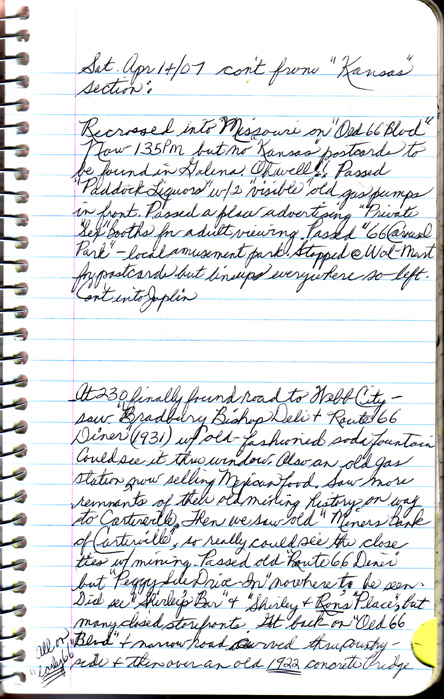 Sat. Apr 14/07 con't from "Kansas"
section:
Recrossed into "Missouri" on "Old 66 Blvd"
Now 135PM but no "Kansas" postcards to
be found in Galena. Oh well!! Passed
"Paddock Liquors" w/2 "visible" old gas pumps
in front. Passed a place advertising "Private
Sex" Booths for adult viewing. Passed "66 Carousel
Park" - local amusement park. Stopped @ Wal-Mart
for postcards but lineups everywhere so left.
Con't into Joplin
At 230 finally found road to Webb City -
saw "Bradbury Bishop Deli + Route 66
Diner" (1931) w/ old-fashioned soda fountain
Could see it thru window. Also an old gas
station now selling Mexican food. Saw more
remnants of their old mining history on way
to Carterville. Then we saw old "Miners Bank
of Carterville", so really could see the close
ties w/ mining. Passed old "Route 66 Diner"
but "Peggy Sue Drive-In" nowhere to be seen.
Did see "Shirley's Bar" + "Shirley + Ron's Place", but
many closed storefronts. Got back on "Old 66
Blvd" + narrow road curved thru country-
side + then over an old 1922 concrete bridge
all on
"Early 66"